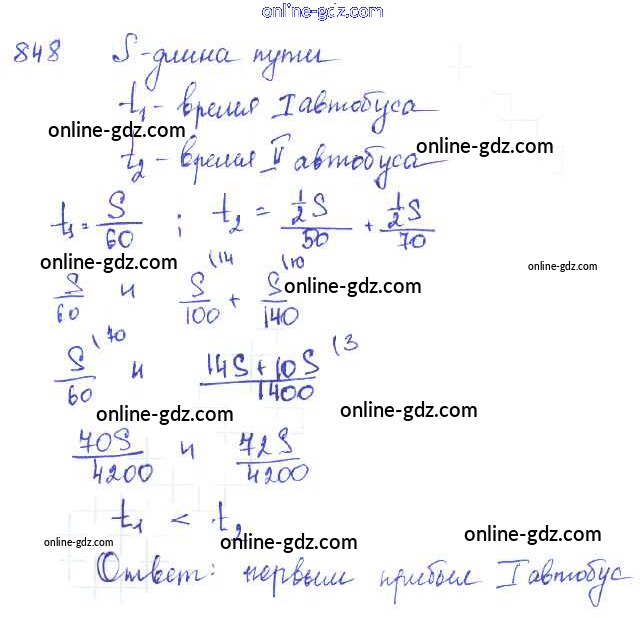 online-gdz.com
848 S - длина пути
t₁ - время I автобуса
online-gdz.com online-gdz.com
t₂ - время II автобуса
t₁ = S/60 ; t₂ = ½S/50 + ½S/70
online-gdz.com online-gdz.com online-gdz.com
S/60 и S/100 (14 + S/140 (10
S/60 (70 и 14S + 10S/1400 (3
online-gdz.com online-gdz.com
70S/4200 и 72S/4200
t₁ < t₂
online-gdz.com online-gdz.com online-gdz.com
Ответ: первым прибыл I автобус